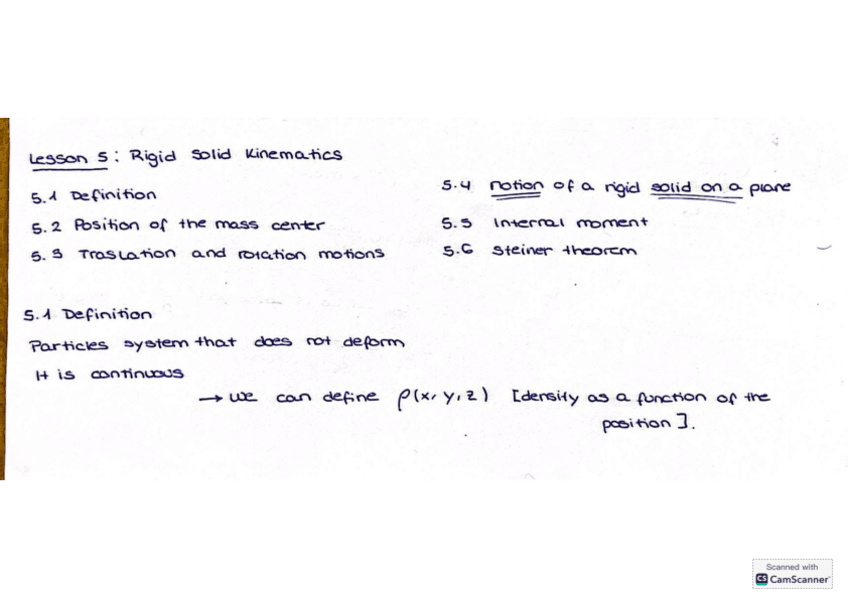 Lesson 5: Rigid Solid Kinematics
5.1 Definition
5.2 Position of the mass center
5.3 Traslation and rotation motions
5.4 notion of a rigid solid on a plane
5.5 Internal moment
5.6 Steiner theorem
5.1 Definition
Particles system that does not deform
It is continuous
→ we can define ρ(x, y, z) [density as a function of the
position].
Scanned with
CS CamScanner